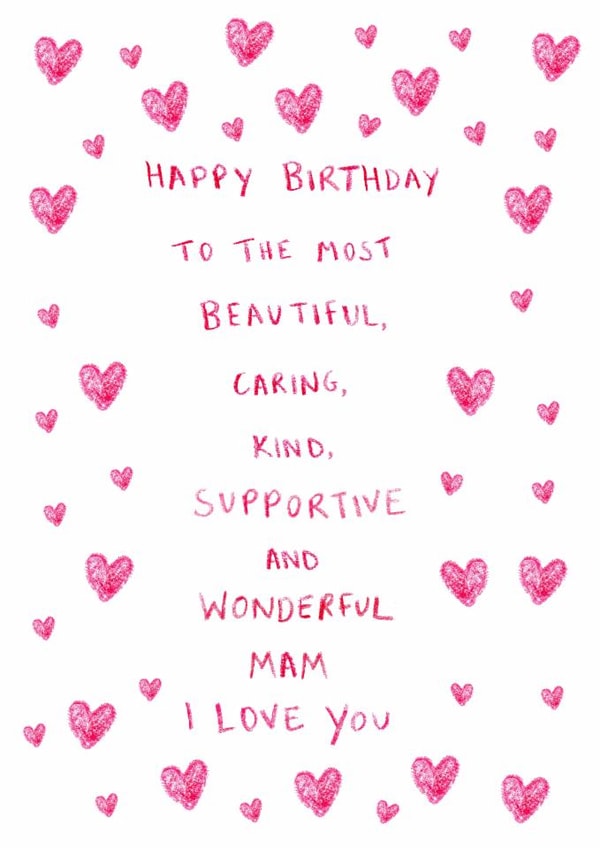 HAPPY BIRTHDAY
TO THE MOST
BEAUTIFUL,
CARING,
KIND,
SUPPORTIVE
AND
WONDERFUL
MAM
I LOVE YOU